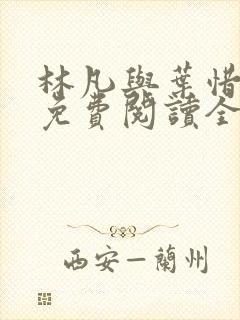 林凡與葉惜
免費閱讀全
西安—蘭州